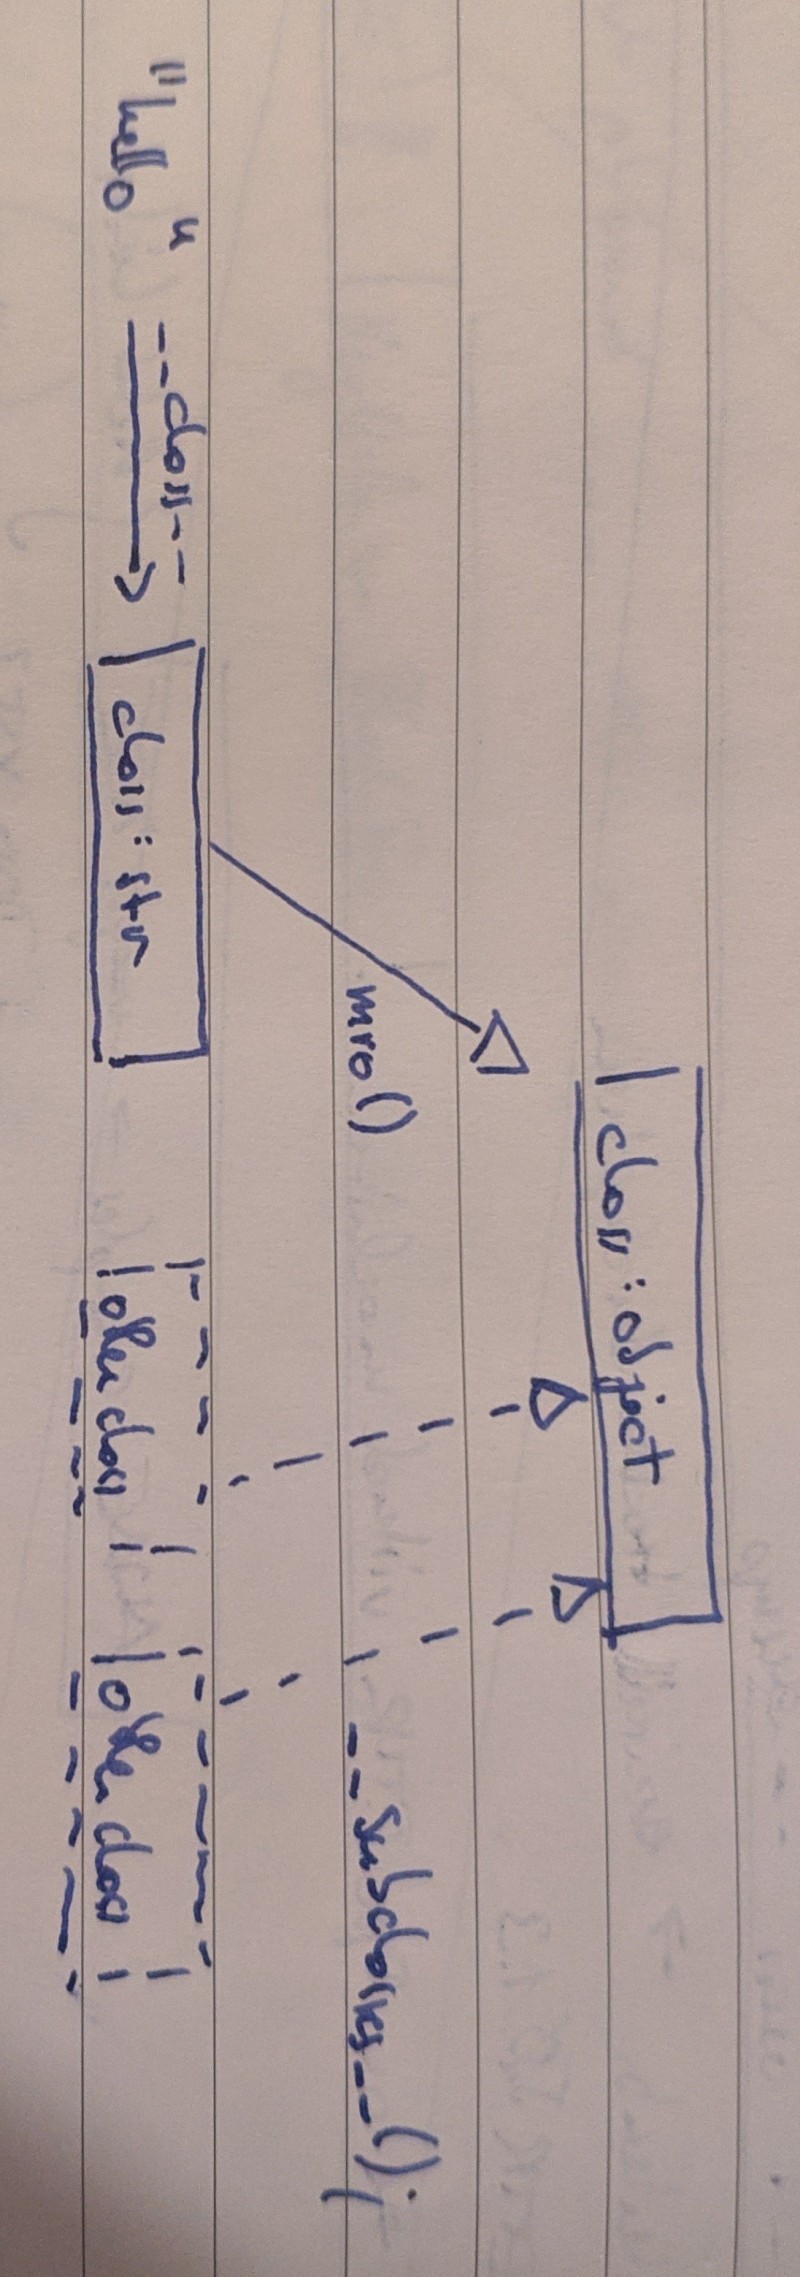 class : object
mro()
__subclasses__();
"hello"
__class__
class : str
other class
other class